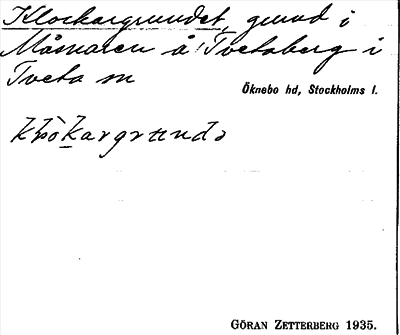 Klockargrundet, grund i
Måsnaren å Tvetaberg i
Tveta sn
Öknebo hd, Stockholms l.
GÖRAN ZETTERBERG 1935.